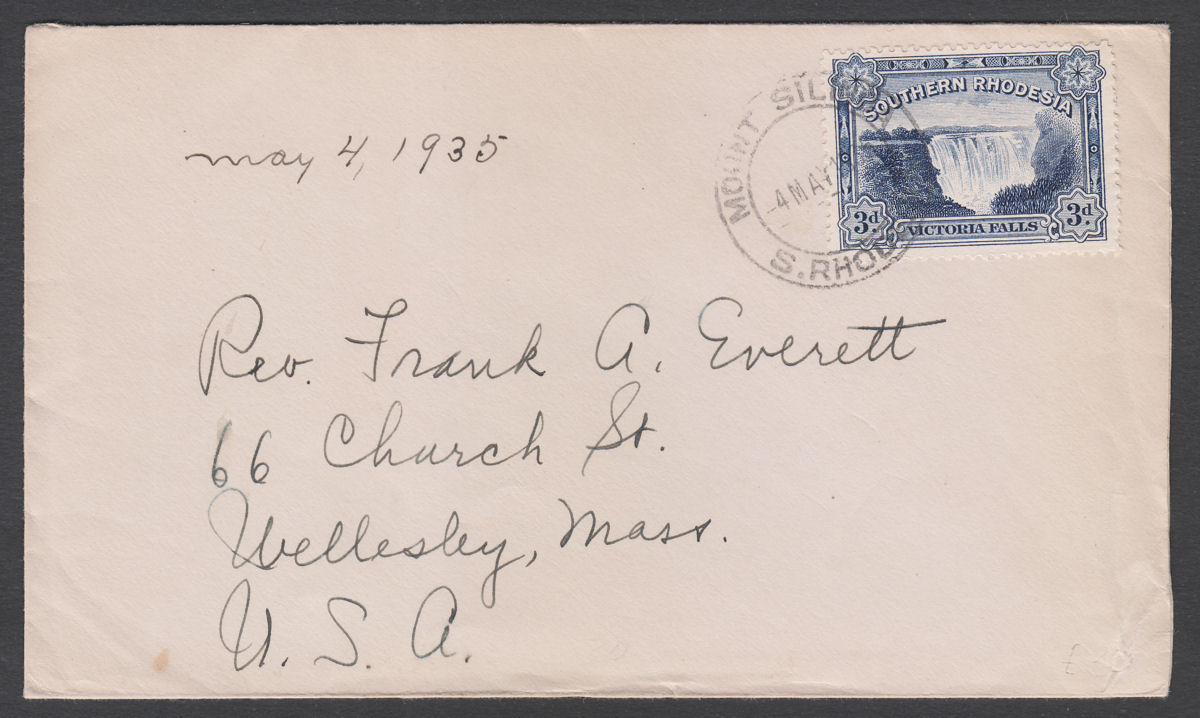 SOUTHERN RHODESIA
3d. VICTORIA FALLS 3d.
MOUNT
4 MAY
may 4, 1935
Rev. Frank A. Everett
66 Church St.
Wellesley, Mass.
U. S. A.